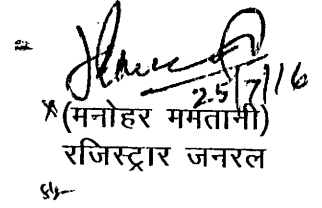 25/7/16
(मनोहर ममतानी)
रजिस्ट्रार जनरल